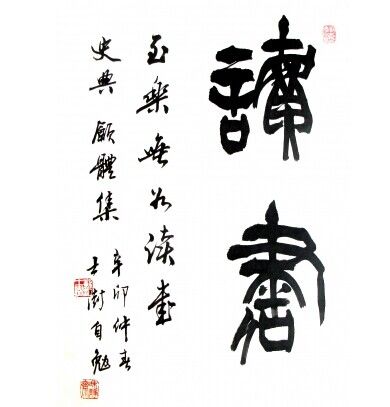 讀書
至樂無如读書
史典 體集
辛卯仲春
士澍自勉